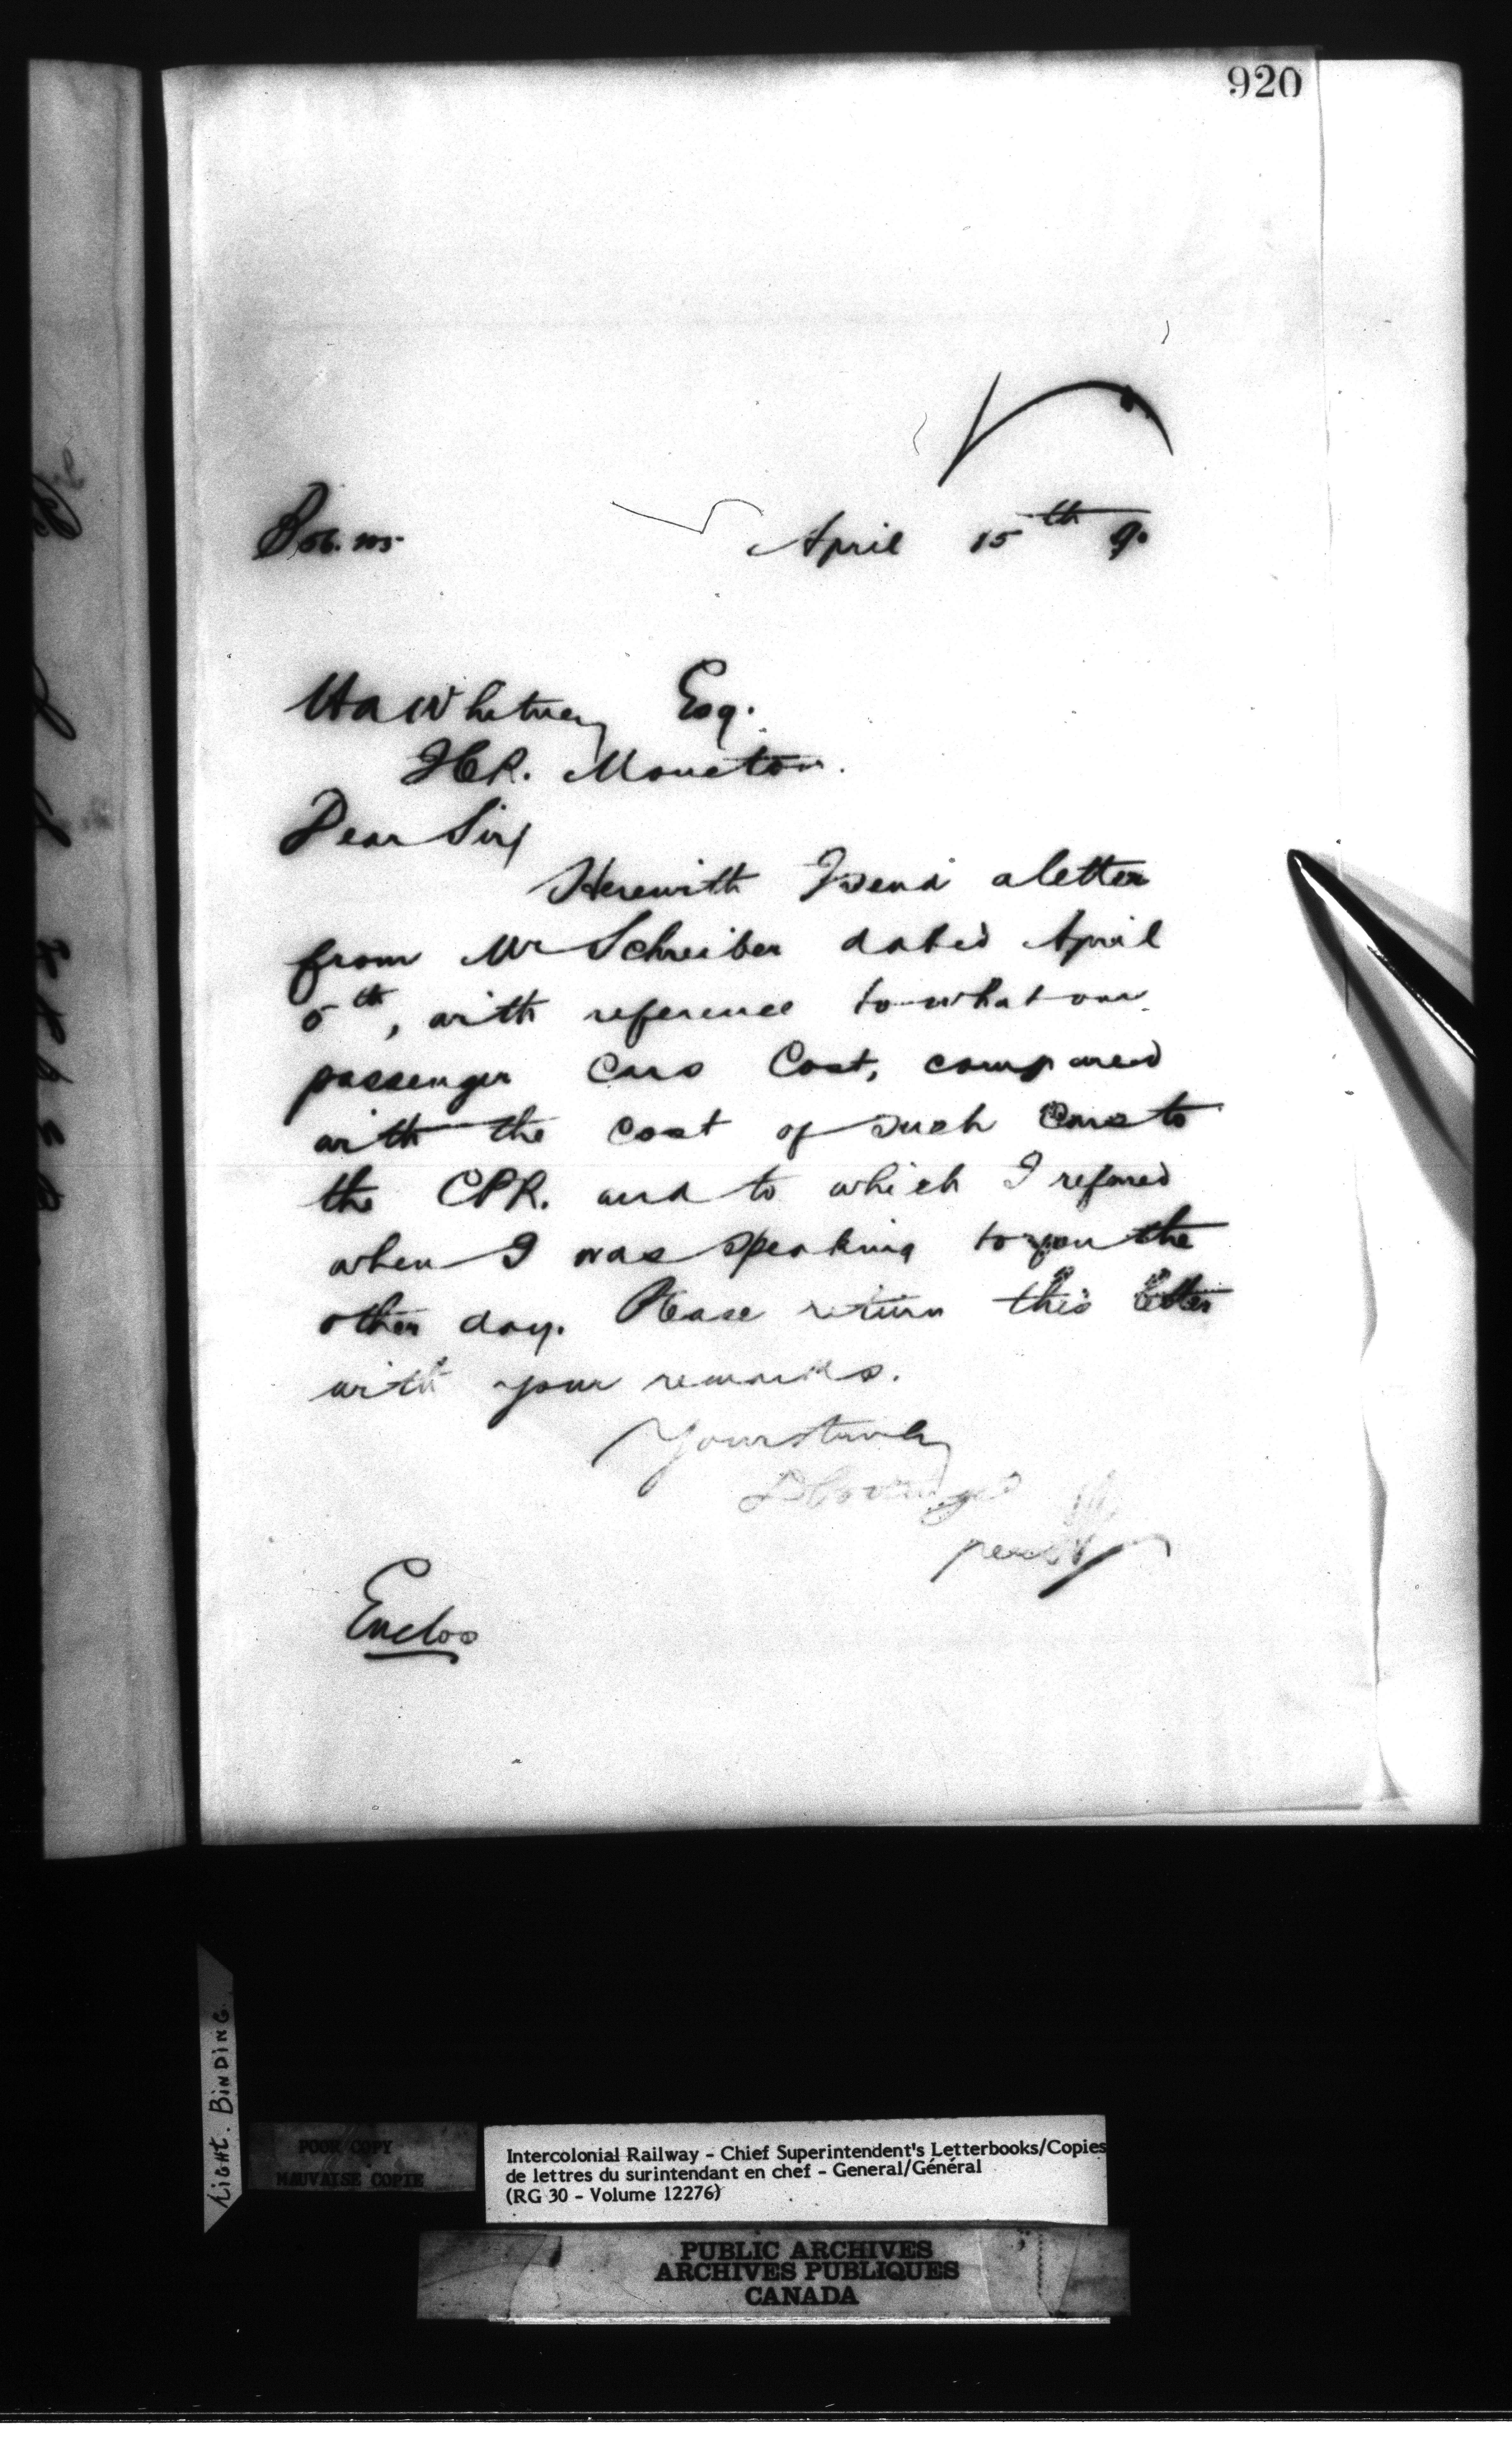 920
April 15th 90
H A Whitney Esq.
ICR. Moncton.
Dear Sir,
Herewith I send a letter
from Mr Schreiber dated April
5th, with reference to what our
passenger Cars Cost, compared
with the cost of such Cars to
the CPR. and to which I refered
when I was speaking to you the
other day. Please return this letter
with your remarks.
Yours truly
D Pottinger
per
Enclos
Light. BinDinG.
POOR COPY
MAUVAISE COPIE
Intercolonial Railway - Chief Superintendent's Letterbooks/Copies
de lettres du surintendant en chef - General/Général
(RG 30 - Volume 12276)
PUBLIC ARCHIVES
ARCHIVES PUBLIQUES
CANADA